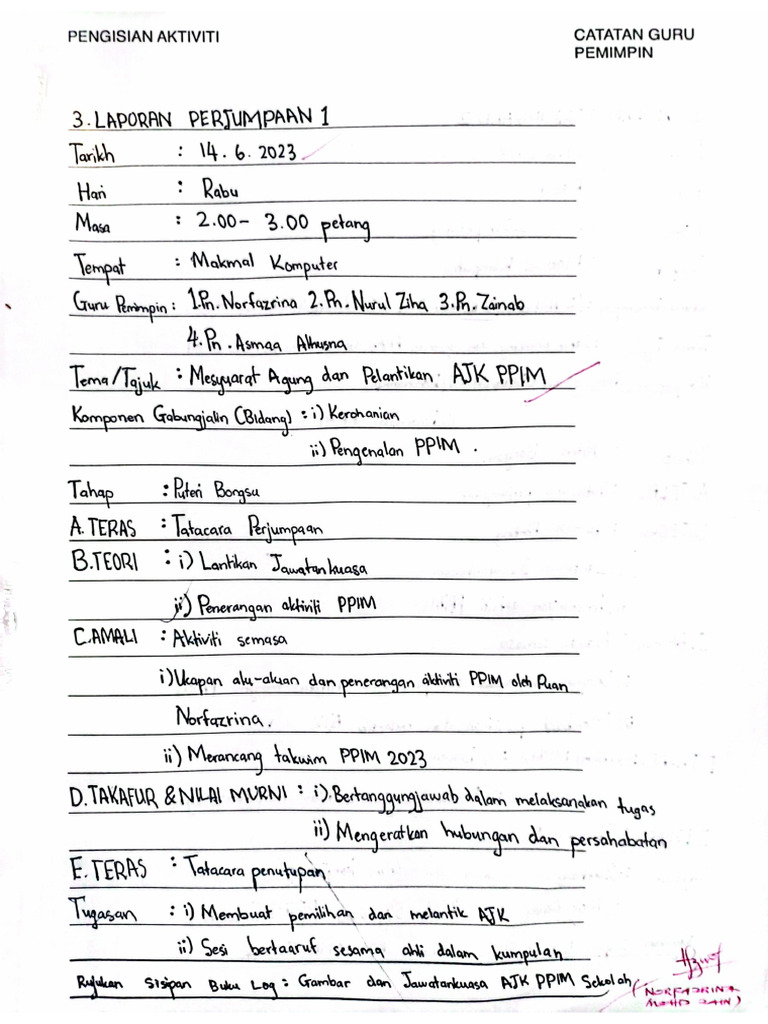 PENGISIAN AKTIVITI
CATATAN GURU
PEMIMPIN
3. LAPORAN PERJUMPAAN 1
Tarikh : 14. 6. 2023
Hari : Rabu
Masa : 2.00 - 3.00 petang
Tempat : Makmal Komputer
Guru Pemimpin : 1.Pn. Norfazrina 2.Pn. Nurul Ziha 3.Pn. Zainab
4.Pn. Asmaa Alhusna
Tema/Tajuk : Mesyuarat Agung dan Pelantikan AJK PPIM
Komponen Gabungjalin (Bidang) : i) Kerohanian
ii) Pengenalan PPIM.
Tahap : Puteri Bongsu
A.TERAS : Tatacara Perjumpaan
B.TEORI : i) Lantikan Jawatankuasa
ii) Penerangan aktiviti PPIM
C.AMALI : Aktiviti semasa
i) Ucapan alu-aluan dan penerangan aktiviti PPIM oleh Puan
Norfazrina.
ii) Merancang takwim PPIM 2023
D.TAKAFUR & NILAI MURNI : i). Bertanggungjawab dalam melaksanakan tugas
ii) Mengeratkan hubungan dan persahabatan
E.TERAS : Tatacara penutupan
Tugasan : i) Membuat pemilihan dan melantik AJK
ii) Sesi bertaaruf sesama ahli dalam kumpulan
Rujukan Sisipan Buku Log : Gambar dan Jawatankuasa AJK PPIM Sekolah
(NORFADRINA
MOHD ZAIN)